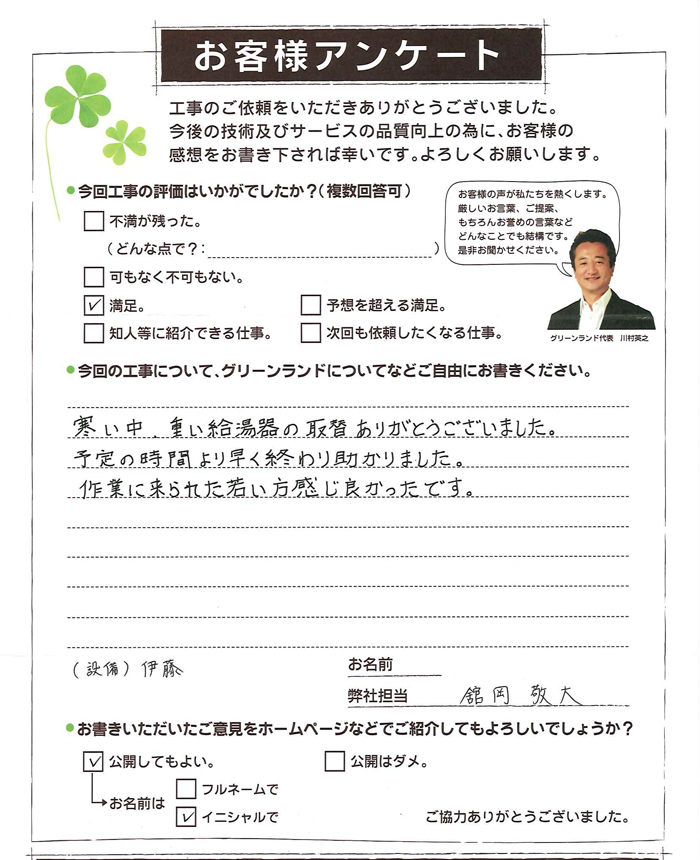 お客様アンケート
工事のご依頼をいただきありがとうございました。
今後の技術及びサービスの品質向上の為に、お客様の
感想をお書き下されば幸いです。よろしくお願いします。
●今回工事の評価はいかがでしたか？（複数回答可）
お客様の声が私たちを熱くします。
厳しいお言葉、ご提案、
もちろんお誉めの言葉など
どんなことでも結構です。
是非お聞かせください。
不満が残った。
（どんな点で？：　）
可もなく不可もない。
満足。
予想を超える満足。
知人等に紹介できる仕事。
次回も依頼したくなる仕事。
グリーンランド代表　川村英之
●今回の工事について、グリーンランドについてなどご自由にお書きください。
寒い中、重い給湯器の取替ありがとうございました。
予定の時間より早く終わり助かりました。
作業に来られた若い方感じ良かったです。
（設備）伊藤
お名前
弊社担当　舘岡 敬大
●お書きいただいたご意見をホームページなどでご紹介してもよろしいでしょうか？
公開してもよい。
公開はダメ。
お名前は
フルネームで
イニシャルで
ご協力ありがとうございました。